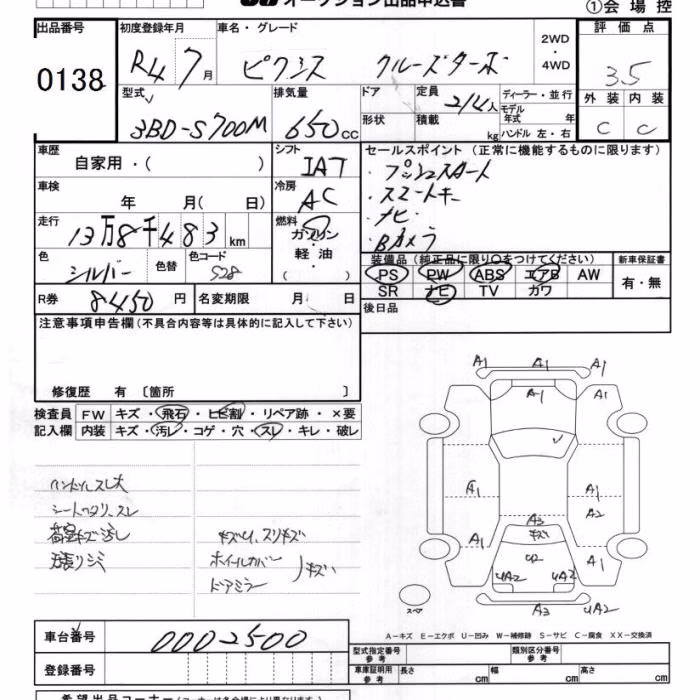 オークション出品申込書
①会場控
出品番号 初度登録年月 車名・グレード 2WD・4WD 評価点
0138 R4 7月 ピクシス クルーズターボ 3.5
型式 排気量 ドア 定員 ディーラー・並行 外装 内装
3BD-S700M 650cc 形状 積載 2/4人 kg モデル年式 年 ハンドル 左・右 C C
車歴 自家用・( ) シフト IAT セールスポイント (正常に機能するものに限ります)
・プッシュスタート
車検 年 月( 日) 冷房 AC ・スマートキー
・ナビ
走行 13万8千483km 燃料 ガソリン・軽油・( ) ・Bカメラ
色 シルバー 色替 色コード S28 装備品 (純正品に限り〇をつけてください) 新車保証書
PS PW ABS エアB AW 有・無
R券 8450円 名変期限 月 日 SR ナビ TV カワ
注意事項申告欄(不具合内容等は具体的に記入して下さい) 後日品
修復歴 有 〔箇所 〕
検査員 FW キズ・飛石・ヒビ割・リペア跡・×要
記入欄 内装 キズ・汚レ・コゲ・穴・スレ・キレ・破レ
A1 A1 A1
A1
ハンドルスレ大
シートヘタリ、スレ
荷室キズ汚れ
A1 A1
A2
A3
キズ
ホイールカバー
ドアミラー
キズ
A1 A1
U2
UA2 UA2
スペア
A3 UA2
A-キズ E-エクボ U-凹み W-補修跡 S-サビ C-腐食 XX-交換済
車台番号 0002500
型式指定番号 参考 類別区分番号 参考
登録番号 車庫証明用 参考 長さ cm 幅 cm 高さ cm
希望出品コーナー